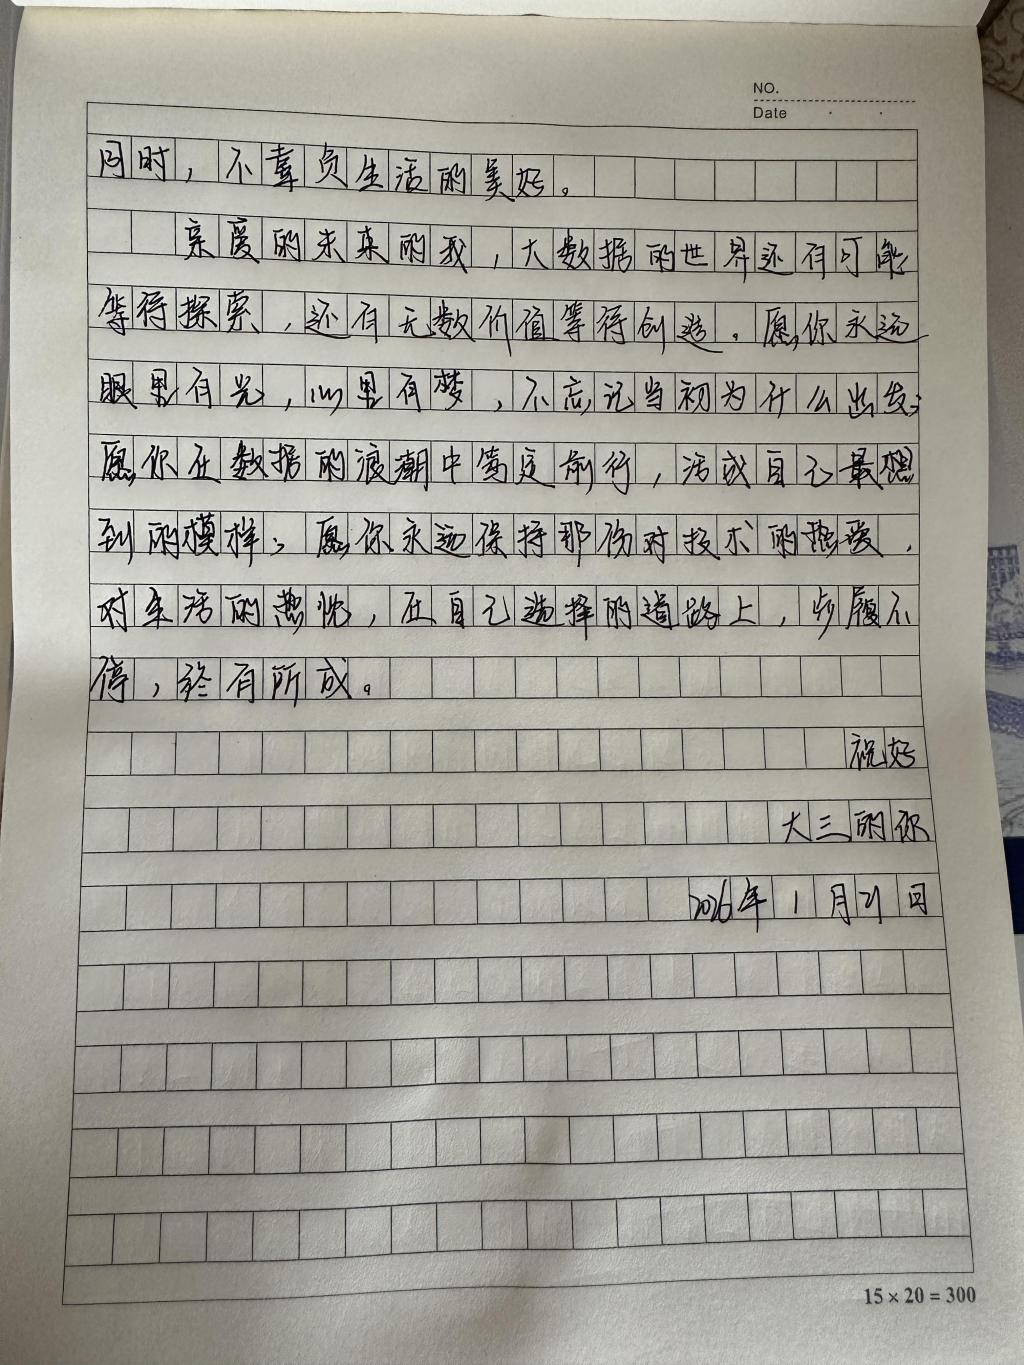 NO.
Date
同时，不辜负生活的美好。
亲爱的未来的我，大数据的世界还有可能
等待探索，还有无数价值等待创造。愿你永远
眼里有光，心里有梦，不忘记当初为什么出发；
愿你在数据的浪潮中笃定前行，活成自己最想
到的模样；愿你永远保持那份对技术的热爱，
对生活的热忱，在自己选择的道路上，步履不
停，终有所成。
祝好
大三的你
2026年1月21日
15×20=300